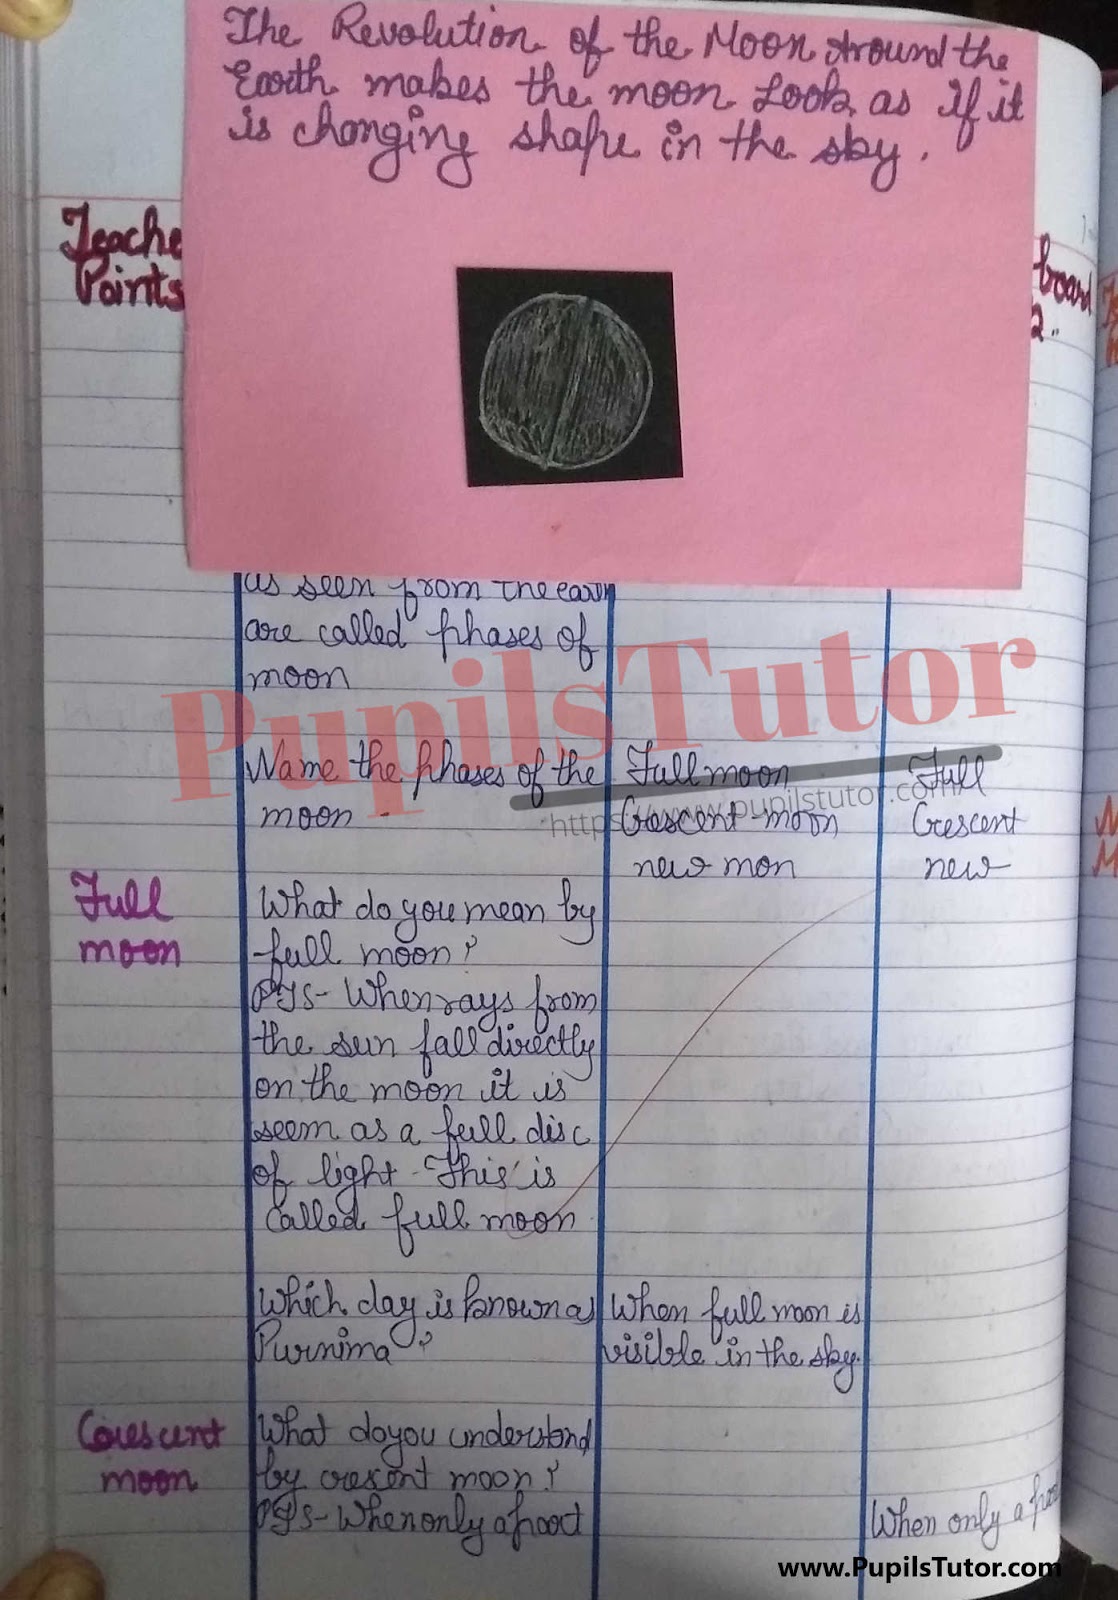 The Revolution of the Moon Around the
Earth makes the moon Look as if it
is changing shape in the sky.
Teache
Points
board
as seen from the earth
are called phases of
moon
PupilsTutor
https://www.pupilstutor.com/
Name the phases of the
moon.
Full moon
Crescent moon
new mon
Full
Crescent
new
Full
moon
What do you mean by
full moon?
PTS- When rays from
the sun fall directly
on the moon it is
seem as a full disc
of light. This is
called full moon
Which day is known as
Purnima?
When full moon is
visible in the sky.
Crescent
moon
What do you understand
by crescent moon?
PTS- When only a part
When only a part
www.PupilsTutor.com